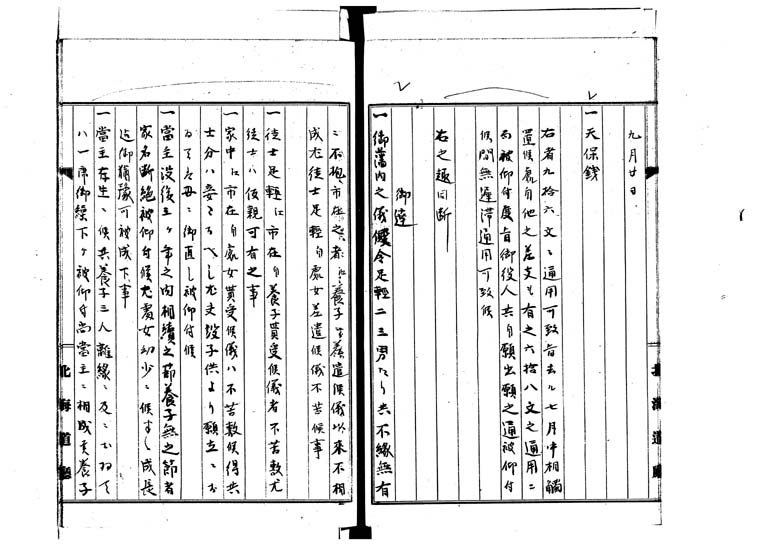 九月廿日
一天保銭
右者九拾六文ニ通用可致旨去ル七月中相觸
置候處自他之差支も有之六拾八文之通用ニ
被仰付度旨御役人共ゟ願出願之通被仰付
候間無遅滞通用可致候
右之趣同断
御達
一御藩内之儀縦令足輕二三男たり共不縁無有
ニ不拘市在之者江養子等差遣候儀以来不相
成尤徒士足輕ゟ處女差遣候儀不苦候事
一徒士足輕江市在ゟ養子貰受候儀者不苦敷尤
徒士ハ仮親可有之事
一家中江市在ゟ處女貰受候儀ハ不苦敷候得共
士分ハ妾ニ いたし尤文設子供より願立ニお
ゐて 母ニ御直し被仰付候
一當主没後三ヶ年之内相續之節養子無之節者
家名断絶被仰付候尤處女幼少ニ候ハヽ成長
迄御猶豫可被成下事
一當主存生ニ候共養子三人離縁ニ及ニおゐて
ハ一席御繰下ケ被仰付尚當主ニ相成実養子
北海道廳
北海道廳